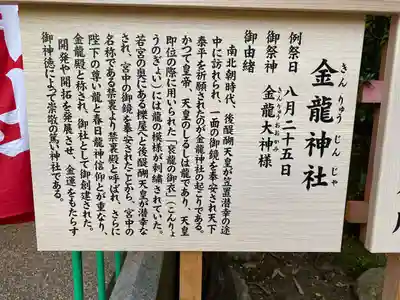 金龍神社
きんりゅうじんじゃ
例祭日 八月二十五日
御祭神 金龍大神様
きんりゅうおおかみ
御由緒
南北朝時代、後醍醐天皇が笠置潜幸の途
中に訪れられ、一面の御鏡を奉安され天下
泰平を祈願されたのが金龍神社の起こりである。
かつて皇帝、天皇のしるしは龍であり、天皇
即位の際に用いられた「袞龍の御衣」（こんりょ
うのぎょい）には龍の模様が刺繍されていた。
若宮の奥にある櫟屋へと後醍醐天皇が潜幸な
され、宮中の御鏡を奉安されたことから、宮中の
名称である禁裏より禁裏殿と呼ばれ、さらに
陛下の尊い龍と春日龍神信仰とが重なり、
金龍殿と称され、御社として御創建された。
開発や開拓を発展させ、金運をもたらす
御神徳によって崇敬の篤い神社である。